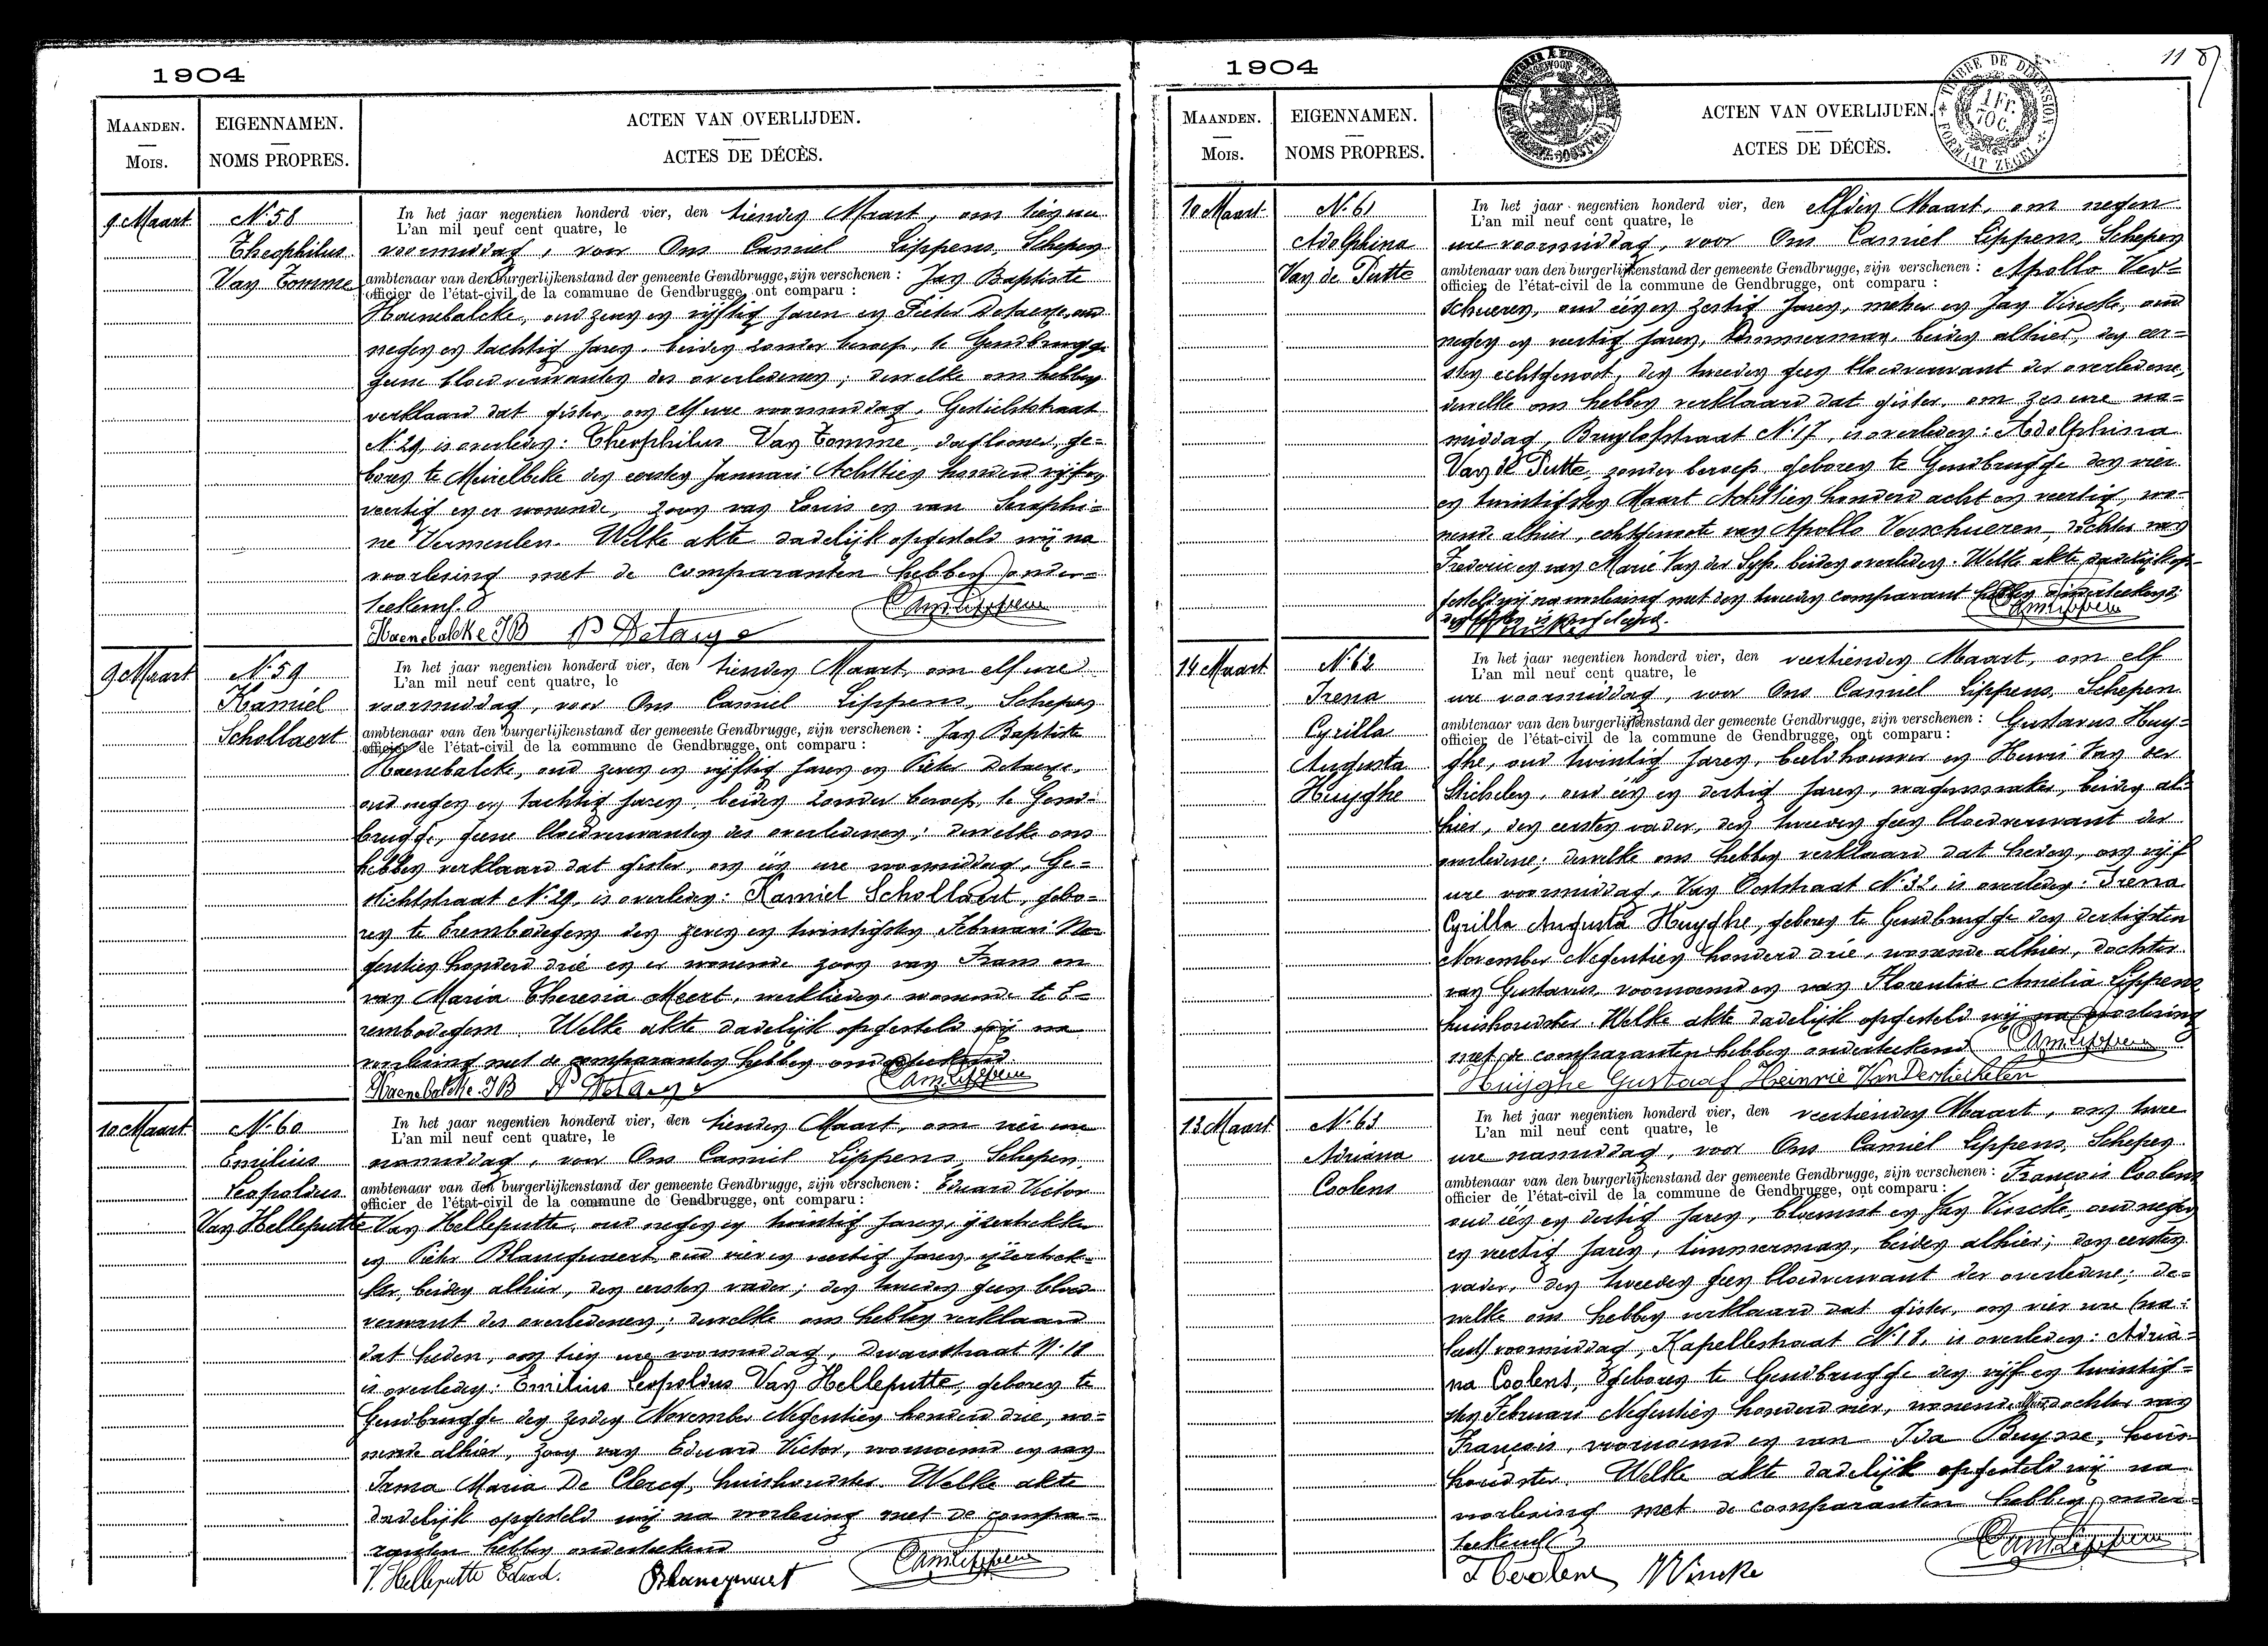 1904
MAANDEN.
Mois.
EIGENNAMEN.
NOMS PROPRES.
ACTEN VAN OVERLIJDEN.
ACTES DE DÉCÈS.
9 Maart
N. 58
Theophilus
Van Tomme
In het jaar negentien honderd vier, den tienden Maart, om tien ure
L'an mil neuf cent quatre, le
voormiddag, voor Ons Camiel Lippens, Schepen
ambtenaar van den burgerlijkenstand der gemeente Gendbrugge, zijn verschenen : Jan Baptiste
officier de l'état-civil de la commune de Gendbrugge, ont comparu :
Haenebalcke, oud zeven en vijftig jaren en Pieter Detaeye, oud
negen en tachtig jaren, beiden zonder beroep, te Gendbrugge
geene bloedverwanten des overledenen; dewelke ons hebben
verklaard dat gister, om elf ure voormiddag, Gestichtstraat
N. 29, is overleden: Theophilus Van Tomme, daglooner, ge=
boren te Meirelbeke den eersten Januari Achttien honderd vijf en
veertig en er wonende, zoon van Louis en van Seraphi=
ne Vermeulen. Welke akte dadelijk opgesteld wij na
voorlezing met de comparanten hebben onder=
teekend.
Haenebalcke JB P Detaeye CamLippens
9 Maart
N. 59
Kamiel
Schollaert
In het jaar negentien honderd vier, den tienden Maart, om elf ure
L'an mil neuf cent quatre, le
voormiddag, voor Ons Camiel Lippens, Schepen
ambtenaar van den burgerlijkenstand der gemeente Gendbrugge, zijn verschenen : Jan Baptiste
officier de l'état-civil de la commune de Gendbrugge, ont comparu :
Haenebalcke, oud zeven en vijftig jaren en Pieter Detaeye,
oud negen en tachtig jaren, beiden zonder beroep, te Gend=
brugge, geene bloedverwanten des overledenen; dewelke ons
hebben verklaard dat gister, om één ure voormiddag, Ge=
stichtstraat N. 29, is overleden: Kamiel Schollaert, gebo=
ren te Erembodegem den zeven en twintigsten Februari Ne=
gentien honderd drie en er wonende zoon van Frans en
van Maria Theresia Meert, werklieden, wonende te E=
rembodegem. Welke akte dadelijk opgesteld wij na
voorlezing met de comparanten hebben onderteekend.
Haenebalcke JB P Detaeye CamLippens
10 Maart
N. 60
Emilius
Leopoldus
Van Helleputte
In het jaar negentien honderd vier, den tienden Maart, om vier ure
L'an mil neuf cent quatre, le
namiddag, voor Ons Camiel Lippens, Schepen,
ambtenaar van den burgerlijkenstand der gemeente Gendbrugge, zijn verschenen : Eduard Victor
officier de l'état-civil de la commune de Gendbrugge, ont comparu :
Van Helleputte, oud negen en twintig jaren, ijzertrekker
en Pieter Blancquaert, oud vier en veertig jaren, ijzertrek=
ker, beiden alhier, den eersten vader; den tweeden geen bloed
verwant des overledenen; dewelke ons hebben verklaard
dat heden, om tien ure voormiddag, Dwarsstraat N. 18
is overleden: Emilius Leopoldus Van Helleputte, geboren te
Gendbrugge den zesden November Negentien honderd drie, wo=
nende alhier, zoon van Eduard Victor, voornoemd en van
Irma Maria De Clercq, huishoudster. Welke akte
dadelijk opgesteld wij na voorlezing met de compa=
ranten hebben onderteekend
V. Helleputte Eduard. Blancquaert CamLippens
1904
11
TIMBRE DE DIMENSION
1 Fr.
70 C.
FORMAAT ZEGEL
MAANDEN.
Mois.
EIGENNAMEN.
NOMS PROPRES.
ACTEN VAN OVERLIJDEN.
ACTES DE DÉCÈS.
10 Maart
N. 61
Adolphina
Van de Putte
In het jaar negentien honderd vier, den elfden Maart, om negen
L'an mil neuf cent quatre, le
ure voormiddag, voor Ons Camiel Lippens, Schepen
ambtenaar van den burgerlijkenstand der gemeente Gendbrugge, zijn verschenen : Apollo Ver=
officier de l'état-civil de la commune de Gendbrugge, ont comparu :
schueren, oud één en zestig jaren, metser en Jan Vincke, oud
negen en veertig jaren, timmerman, beiden alhier, den eer=
sten echtgenoot, den tweeden geen bloedverwant der overledene,
dewelke ons hebben verklaard dat gister, om zes ure na=
middag, Bruylofstraat N. 17, is overleden: Adolphina
Van de Putte, zonder beroep, geboren te Gendbrugge den vier
en twintigsten Maart Achttien honderd acht en veertig, wo=
nende alhier, echtgenoote van Apollo Verschueren, dochter van
Frederic en van Marie Van der Syp, beiden overleden. Welke akte dadelijk op=
gesteld wij na voorlezing met den tweeden comparant hebben onderteekend;
CamLippens
14 Maart
N. 62
Irena
Cyrilla
Augusta
Huyghe
In het jaar negentien honderd vier, den veertienden Maart, om elf
L'an mil neuf cent quatre, le
ure voormiddag, voor Ons Camiel Lippens, Schepen
ambtenaar van den burgerlijkenstand der gemeente Gendbrugge, zijn verschenen : Gustavus Huy=
officier de l'état-civil de la commune de Gendbrugge, ont comparu :
ghe, oud twintig jaren, beeldhouwer en Henri Van der
Stichelen, oud één en dertig jaren, wagenmaker, beiden al=
hier, den eersten vader, den tweeden geen bloedverwant der
overledene; dewelke ons hebben verklaard dat heden, om vijf
ure voormiddag, Van Ooststraat N. 32, is overleden: Irena
Cyrilla Augusta Huyghe, geboren te Gendbrugge den dertigsten
November Negentien honderd drie, wonende alhier, dochter
van Gustavus, voornoemd en van Florentia Amelia Lippens
huishoudster. Welke akte dadelijk opgesteld wij na voorlezing
met de comparanten hebben onderteekend CamLippens
Huijghe Gustaaf Heinrie VanDerstichelen
13 Maart
N. 63
Adriana
Coolens
In het jaar negentien honderd vier, den veertienden Maart, om twee
L'an mil neuf cent quatre, le
ure namiddag, voor Ons Camiel Lippens, Schepen
ambtenaar van den burgerlijkenstand der gemeente Gendbrugge, zijn verschenen : François Coolens
officier de l'état-civil de la commune de Gendbrugge, ont comparu :
oud één en dertig jaren, bloemist en Jan Vincke, oud negen
en veertig jaren, timmerman, beiden alhier; den eersten
vader, den tweeden geen bloedverwant der overledene; de=
welke ons hebben verklaard dat gister, om vier ure
voormiddag, Kapellestraat N. 18, is overleden: Adria=
na Coolens, geboren te Gendbrugge den vijf en twintig=
sten Februari Negentien honderd vier, wonende alhier, dochter van
François, voornoemd en van Ida Buysse, huis=
houdster. Welke akte dadelijk opgesteld wij na
voorlezing met de comparanten hebben onder=
teekend
F Coolens Vincke CamLippens